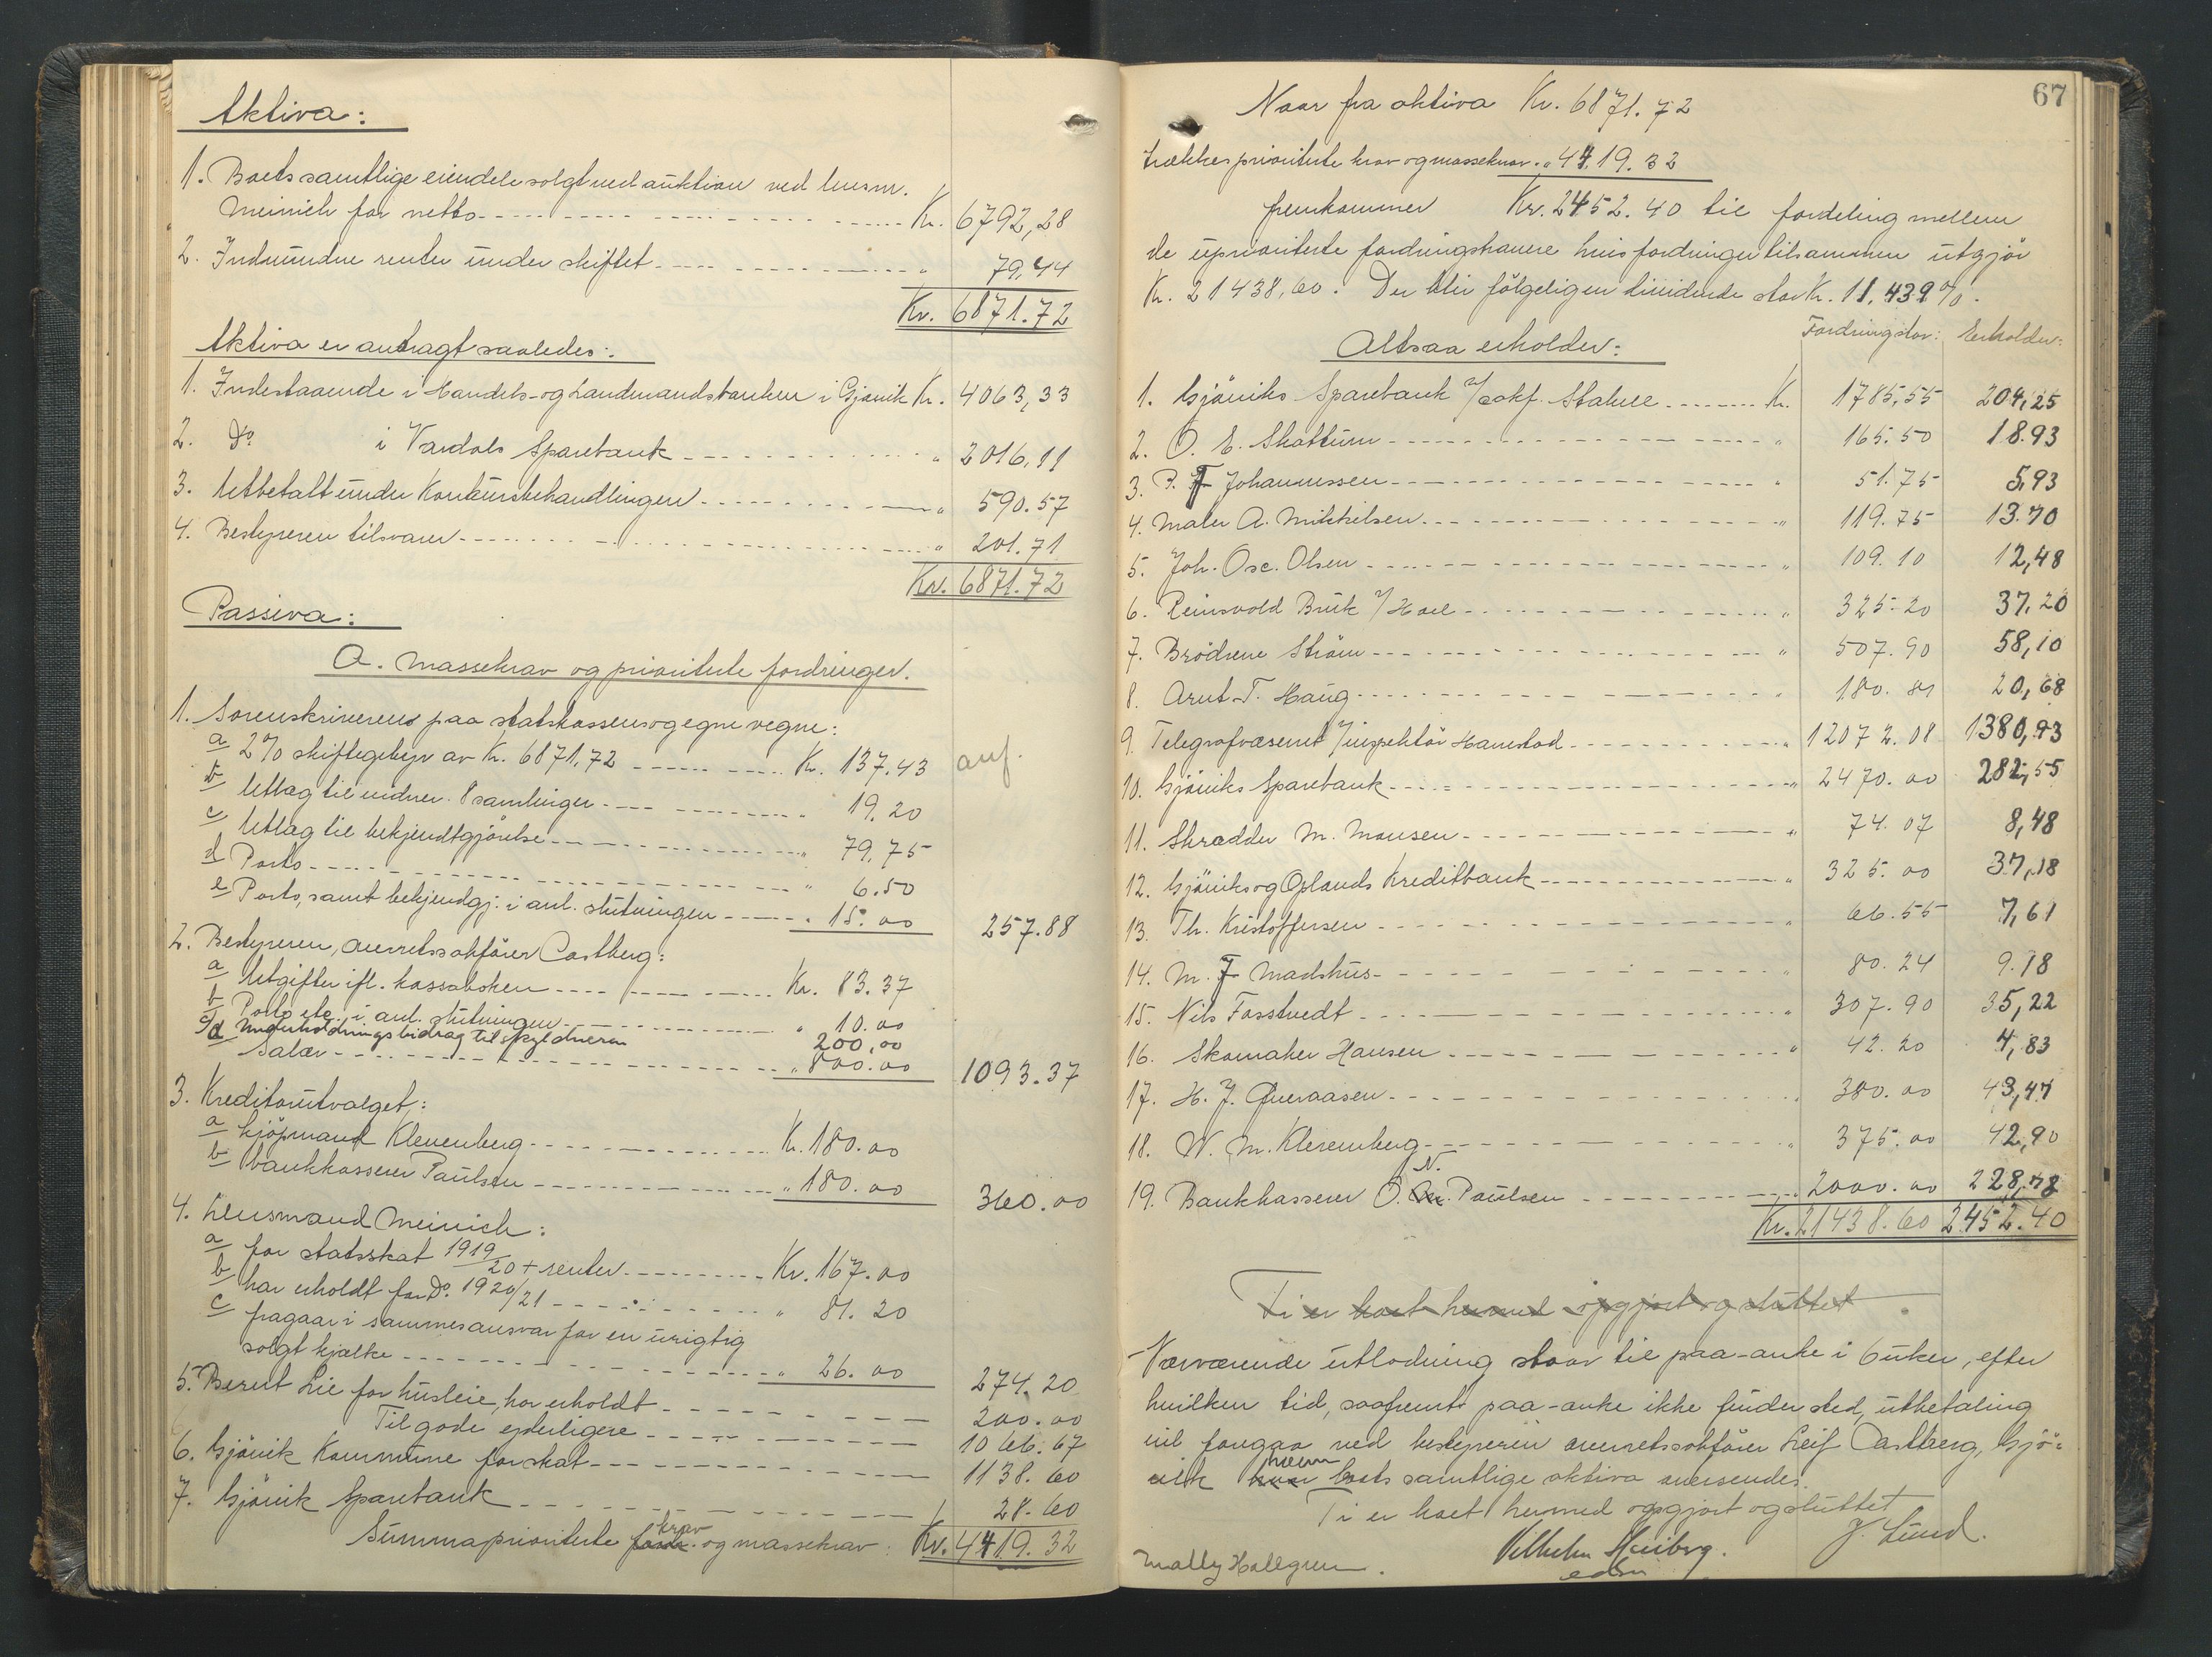 Aktiva:
1. Boets samtlige eiendele solgt ved auktion ved lensm.
Meinich for netto Kr. 6792,28
2. Indvundne renter under skiftet " 79,44
Kr. 6871.72
Aktiva er antragt saaledes:
1. Indestaaende i Handels- og Landmandsbanken i Gjøvik Kr. 4063,33
2. Do i Vardals Sparebank " 2016,11
3. Utbetalt under Konkursbehandlingen " 590.57
4. Bestyreren tilsvarer " 201.71
Kr. 6871.72
Passiva:
A. Massekrav og prioriterte fordringer.
1. Sorenskriveren paa statskassens og egne vegne:
a 2% skiftegebyr av Kr. 6871,72 Kr. 137.43 anf.
b Utlag til vidner 8 samlinger " 19.20
c Utlag til bekjendtgjørelse " 79,75
d Porto " 6.50
e Porto, samt bekjendgj. i anl. slutningen " 15.00 257.88
2. Bestyreren, overretssakfører Castberg:
a Utgifter ifl. kassaboken Kr. 83.37
b Porto etc. i anl. slutningen " 10.00
c/d Underholdningsbidrag til skyldneren 200,00
Salær " 800.00 1093.37
3. Kreditorutvalget:
a kjøpmand Klevenberg Kr. 180.00
b bankkasserer Paulsen " 180.00 360.00
4. Lensmand Meinich:
a for statsskat 1919/20 + renter Kr. 167.00
b har erholdt for Do. 1920/21 " 81.20
c fragaar i sammes ansvar for en urigtig
solgt kjælke " 26.00 274.20
5. Berut Lie for husleie, har erholdt 200.00
Tilgode yderligere 1066.67
6. Gjøvik Kommune for skat 1138.60
7. Gjøvik Sparebank 28.60
Summa prioriterte fordr. krav og massekrav: Kr. 4419.32
67
Naar fra aktiva Kr. 6871.72
trækkes prioriterte krav og massekrav " 4419.32
fremkommer Kr. 2452.40 til fordeling mellem
de uprioriterte fordringshavere hvis fordringer tilsammen utgjør
Kr. 21438,60. Der blir følgeligen dividende stor Kr. 11,439%.
Altsaa erholder: Fordringstor: Erholder:
1. Gjøviks Sparebank v/sakf. Stabell Kr. 1785,55 204,25
2. O. E. Skattum " 165.50 18.93
3. P. F Johannessen " 51.75 5,93
4. Maler A. Mikkelsen " 119.75 13.70
5. Joh. Osc. Olsen " 109.10 12,48
6. Reinsvold Bruk v/Hoel " 325.20 37,20
7. Brødrene Strøm " 507.90 58,10
8. Arnt T. Haug " 180.81 20,68
9. Telegrafvæsenet v/inspektør Hamstad " 12072.08 1380,93
10. Gjøviks Sparebank " 2470.00 282,55
11. Skrædder M. Monsen " 74.07 8,48
12. Gjøviks og Oplands Kreditbank " 325.00 37,18
13. Th. Kristoffersen " 66.55 7,61
14. M. F Madshus " 80.24 9.18
15. Nils Fosstvedt " 307.90 35,22
16. Skomaker Hansen " 42.20 4,83
17. H. J. Queraasen " 380.00 43,47
18. W. M. Klevenberg " 375.00 42,90
19. Bankkasserer O. N. Paulsen " 2000.00 228,78
Kr. 21438.60 2452.40
Ti er boet hermed opgjort og sluttet.
Nærværende utlodning staar til paa-anke i 6 uker, efter
hvilken tid, saafremt paa-anke ikke finder sted, utbetaling
vil foregaa ved bestyreren overretssakfører Leif Castberg, Gjø-
vik hvem boets samtlige aktiva oversendes.
Ti er boet hermed opgjort og sluttet
Vilhelm Heiberg. J. Lund.
Mally Hallgren.
edsv